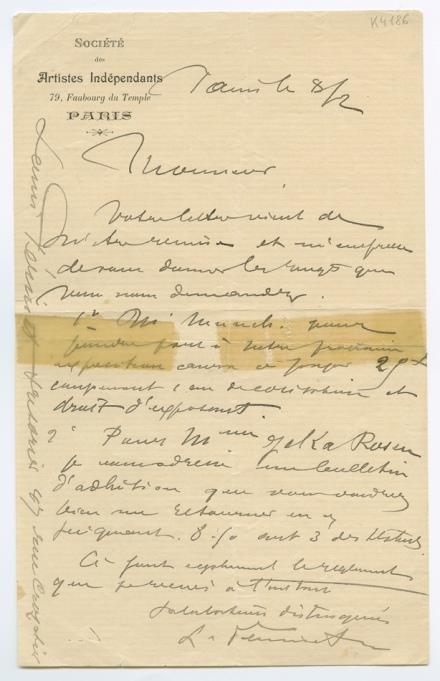 K4186
SOCIÉTÉ
des
Artistes Indépendants
79, Faubourg du Temple
PARIS
Paris le 8/2
Monsieur,
Votre lettre vient de
m'être remise et m'empresse
de vous donner les rensgts que
vous nous demandez.
1° Mr Munch pour
prendre part à notre prochaine
exposition aura à payer 25 f
comprenant sa cotisation et
droit d'exposant.
2° Pour Mme Jelka Rosen
je vous adresse un bulletin
d'adhésion que vous voudrez
bien me retourner en y
joignant 8.50 dont 3 des
Ci joint également le règlement
que je reçois à l'instant
Salutations distinguées
L.
Louis trésorier 67 rue